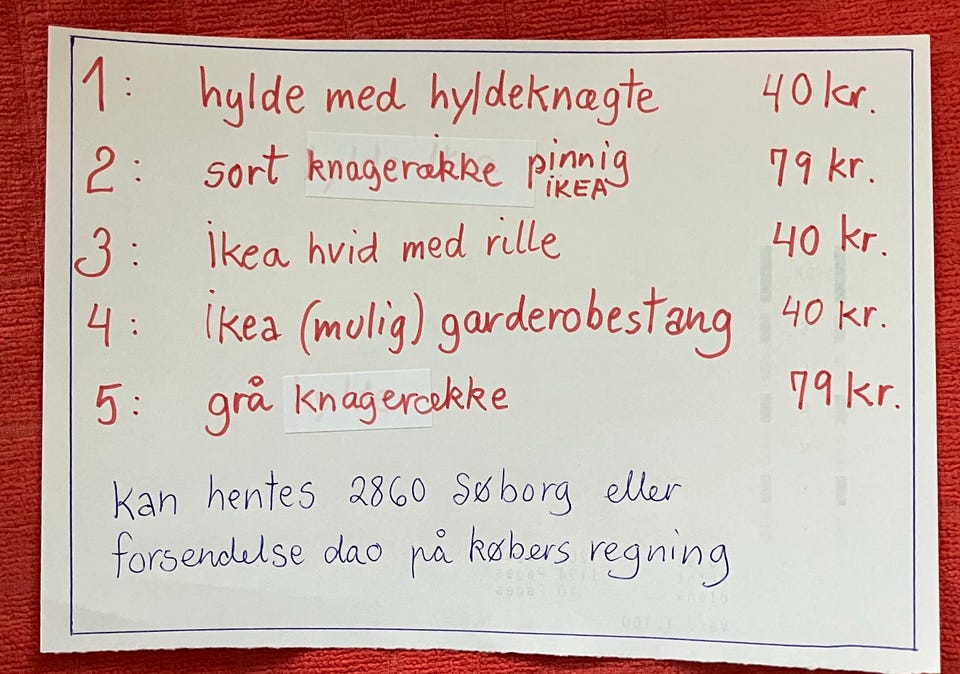 1: hylde med hyldeknægte 40 kr.
2: sort knagerække pinnig IKEA 79 kr.
3: ikea hvid med rille 40 kr.
4: ikea (mulig) garderobestang 40 kr.
5: grå knagerække 79 kr.
Kan hentes 2860 Søborg eller
forsendelse dao på købers regning